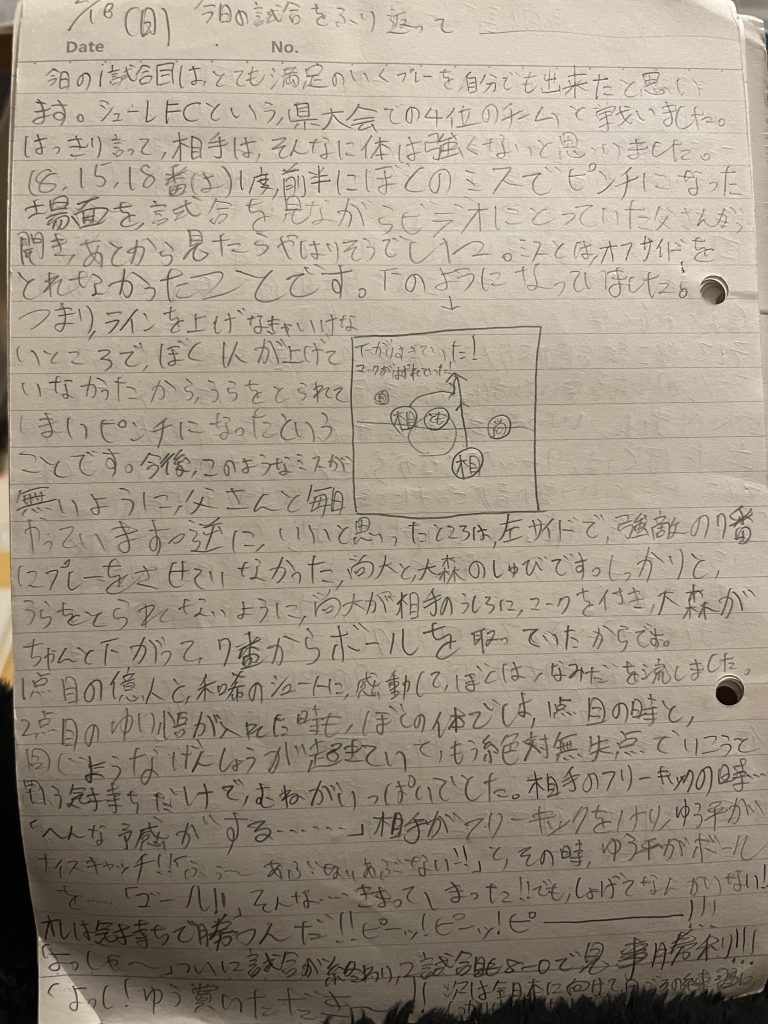 /18 (日) 今日の試合をふり返って
Date ・ No.
今日の1試合目は、とても満足のいくプレーを自分でも出来たと思い
ます。シューレFCという、県大会での4位のチームと戦いました。
はっきり言って、相手は、そんなに体は強くないと思いました。
(8、15、18番は)1度、前半にぼくのミスでピンチになった
場面を、試合を見ながらビデオにとっていた父さんから
聞き、あとから見たらやはりそうでした。ミスとは、オフサイドを
とれなかったことです。下のようになっていました。
↓
つまり、ラインを上げなきゃいけな
いところで、ぼく1人が上げて
いなかったから、うらをとられて
しまいピンチになったという
ことです。今後、このようなミスが
無いように、父さんと毎日
下がりすぎていた!
マークがはずれていた!
相
尚
相
やっています。逆に、いいと思ったところは、左サイドで、強敵の7番
にプレーをさせていなかった、尚大と、大森のしゅびです。しっかりと、
うらをとられてないように、尚大が相手のうしろに、マークを付き、大森が
ちゃんと下がって、7番からボールを取っていたからです。
1点目の億人と、和唏のシュートに、感動して、ぼくは、なみだを流しました。
2点目のゆう悟が入れた時も、ぼくの体では、1点目の時と、
同じようなげんしょうが起きていて、もう絶対無失点でいこうて
思う気持ちだけで、むねがいっぱいでした。相手のフリーキックの時…
「へんな予感がする……」相手がフリーキックをけり、ゆう平が
ナイスキャッチ!!「ふぅ〜 あぶないあぶない!!」と、その時、ゆう平がボール
を…… 「ゴール!!」、そんな…きまってしまった!!でも、しょげてなんかいない!
オレは気持ちで勝つんだ!!ピーッ!ピーッ!ピー――――!!!
「よっしゃ〜」ついに試合が終わり、2試合目も8-0で見事勝利!!!
「よっし!ゆう賞いただき〜!! 次は全日本に向けて